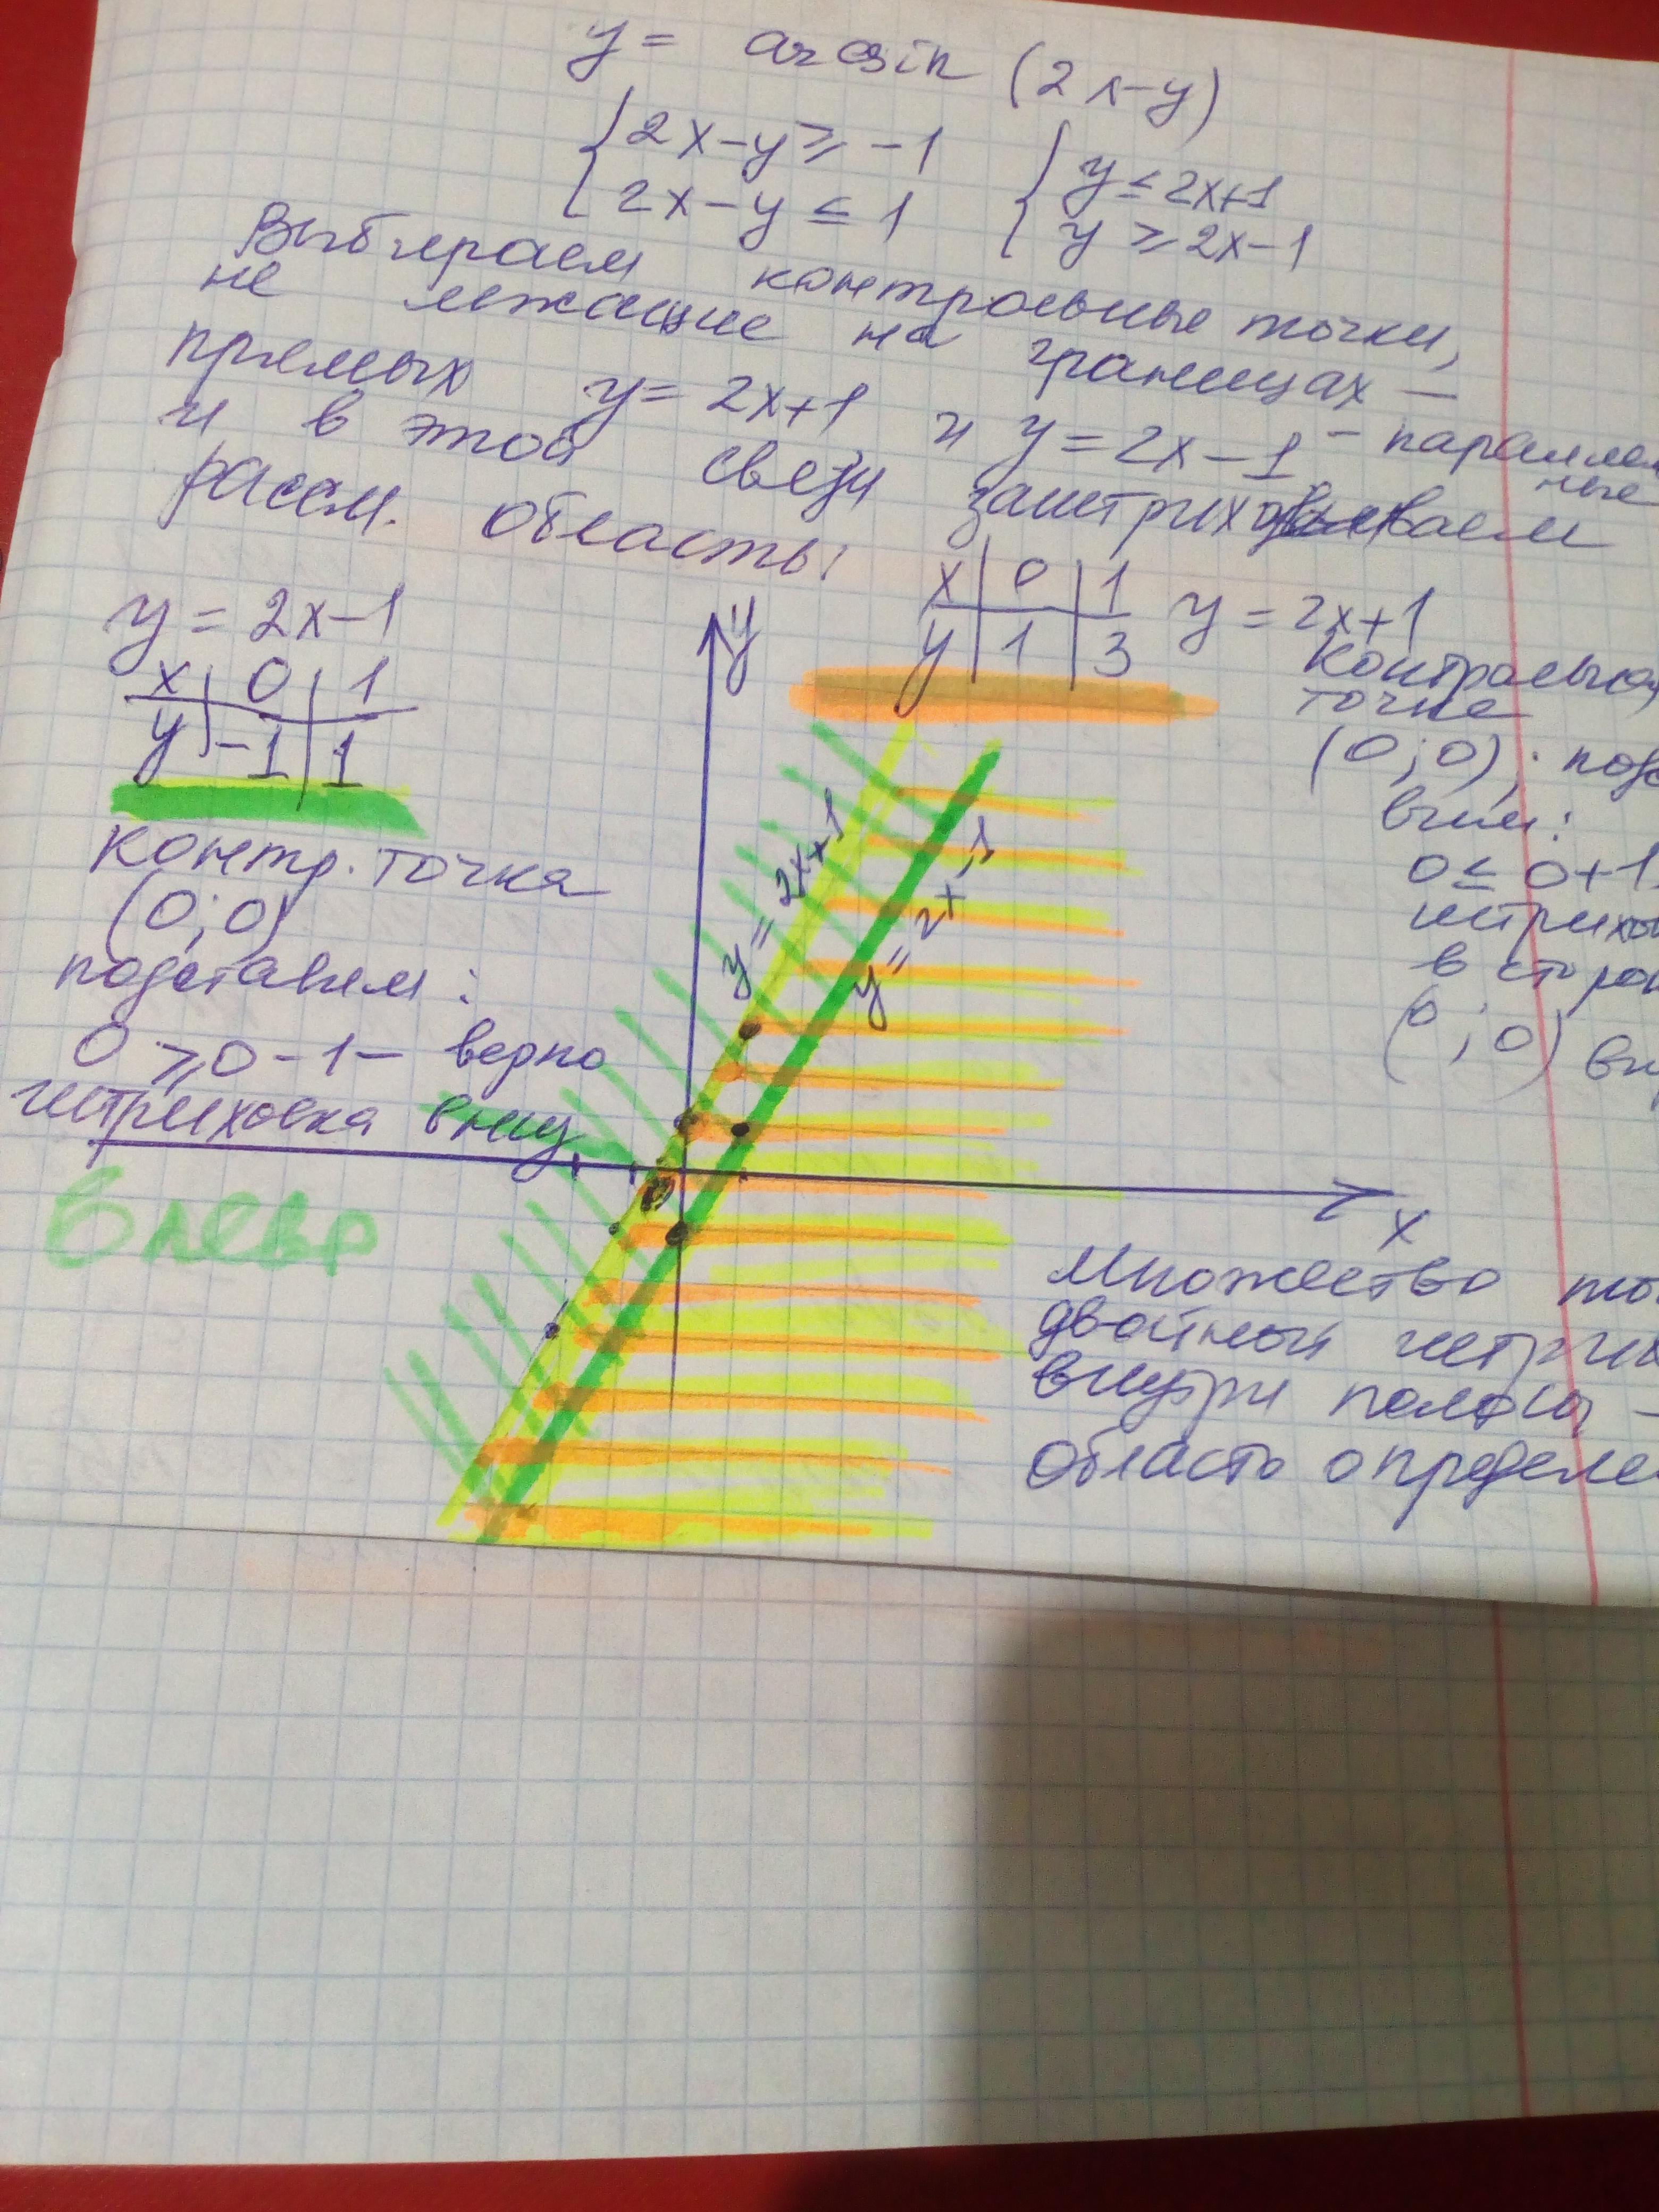 y = arcsin (2x-y)
{2x-y ≥ -1 {y ≤ 2x+1
{2x-y ≤ 1 {y ≥ 2x-1
Выбираем контрольные точки,
не лежащие на границах —
прямых y = 2x+1 и y = 2x-1 - параллель
ные
и в этой связи заштриховываем
рассм. область:
y = 2x-1
x | 0 | 1
y | -1 | 1
контр. точка
(0;0)
подставим:
0 ≥ 0-1 - верно
штриховка вниз
влевр
x | 0 | 1
y | 1 | 3
y = 2x+1
контрольная
точка
(0;0); подс
вим:
0 ≤ 0+1
штрихов
в сторон
(0;0)
y
y = 2x+1
y = 2x-1
x
Множество то
двойной штрих
внутри полосы -
область определе